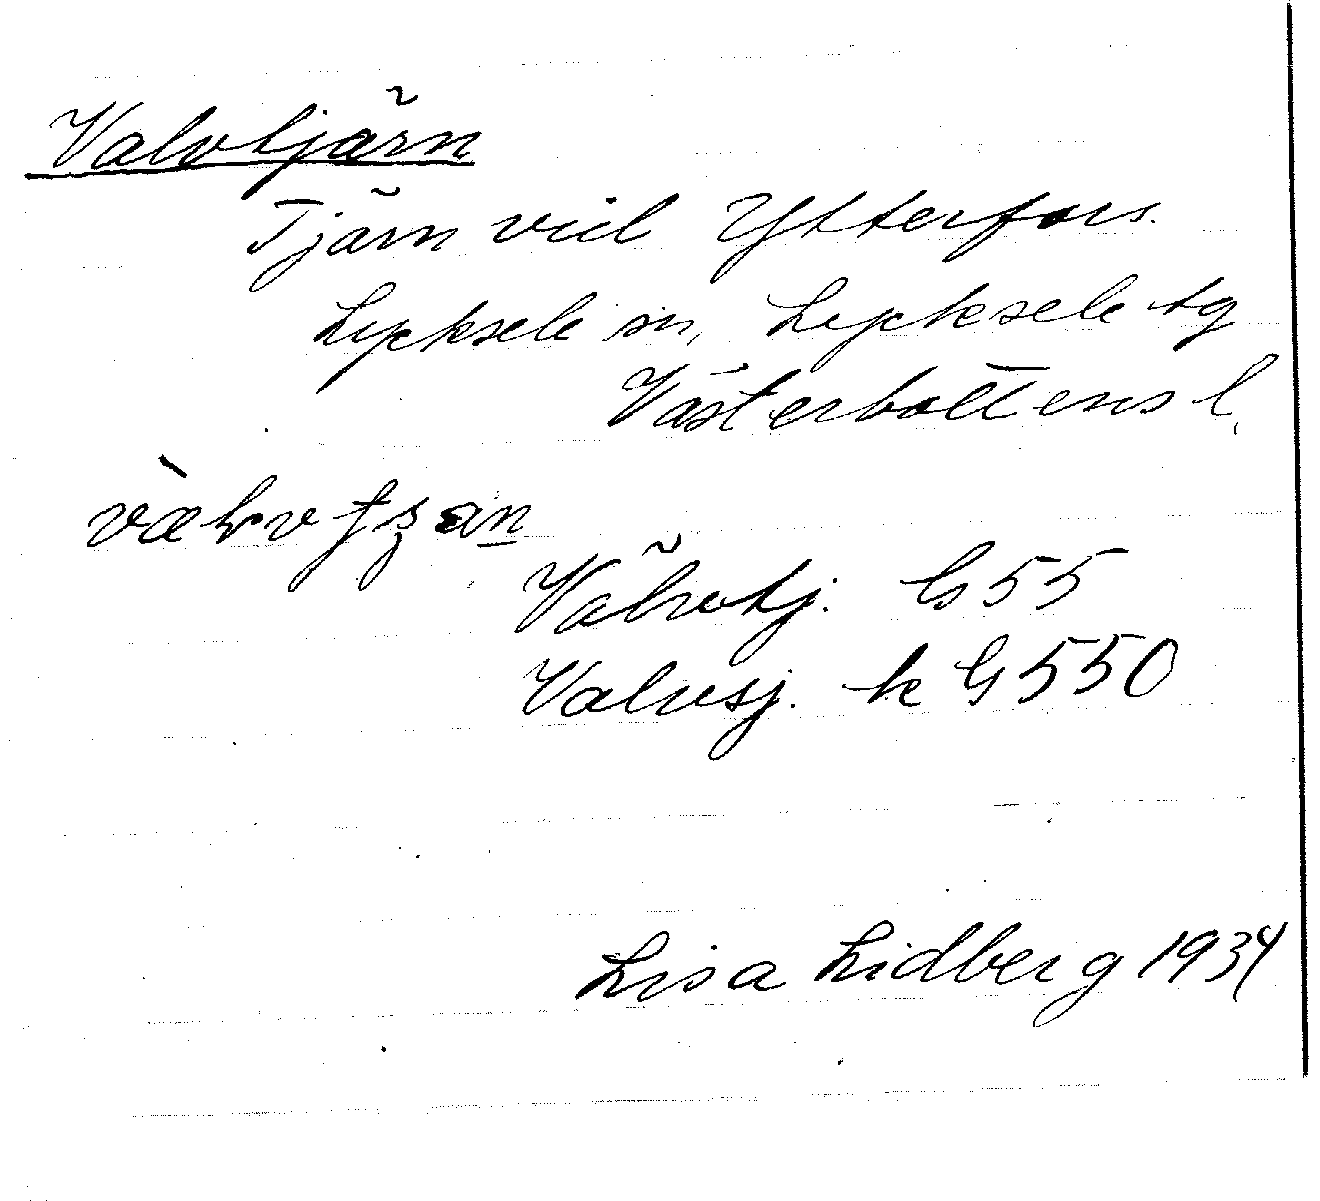 Valvtjärn
Tjärn vid Ytterfors.
Lycksele sn, Lycksele tg
Västerbottens l.
Valvtj. G 55
Valvsj. k G 550
Lisa Lidberg 1934